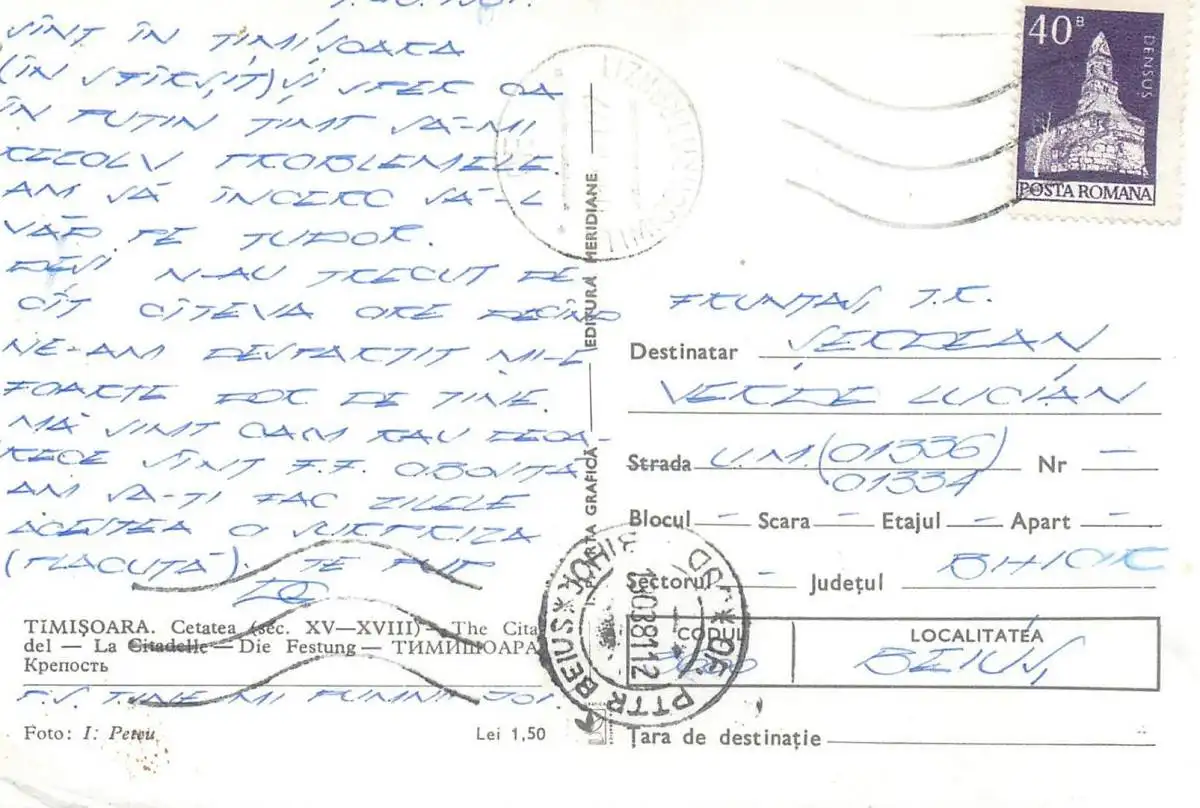 SÎNT ÎN TIMIȘOARA
(ÎN SFÎRȘIT) ȘI SPER CA
ÎN PUȚIN TIMP SĂ-MI
REZOLV PROBLEMELE.
AM SĂ ÎNCERC SĂ-L
VĂD PE TUDOR.
DEȘI N-AU TRECUT DE
CÎT CÎTEVA ORE DECÎND
NE-AM DESPĂRȚIT MI-E
FOARTE DOR DE TINE.
MĂ SIMT CAM RĂU DEOA-
RECE SÎNT F.F. OBOSITĂ
AM SĂ-ȚI FAC ZILELE
ACESTEA O SURPRIZĂ
(PLĂCUTĂ). TE PUP
TIMIȘOARA. Cetatea (sec. XV—XVIII) — The Cita
del — La Citadelle — Die Festung — ТИМИШОАРА
Крепость
P.S. ȚINE-MI PUMNII JOI.
Foto: I. Petcu
Lei 1,50
EDITURA MERIDIANE
ARTA GRAFICĂ
40 B
DENSUȘ
POSTA ROMANA
FRUNTAȘ T.R.
Destinatar ȘERDEAN
VERDE LUCIAN
Strada U.M. (01336) Nr —
01334
Blocul — Scara — Etajul — Apart —
Sectorul - Județul BIHOR
CODUL LOCALITATEA
BEIUȘ
PTTR BEIUS * JUD BIHOR *
Țara de destinație